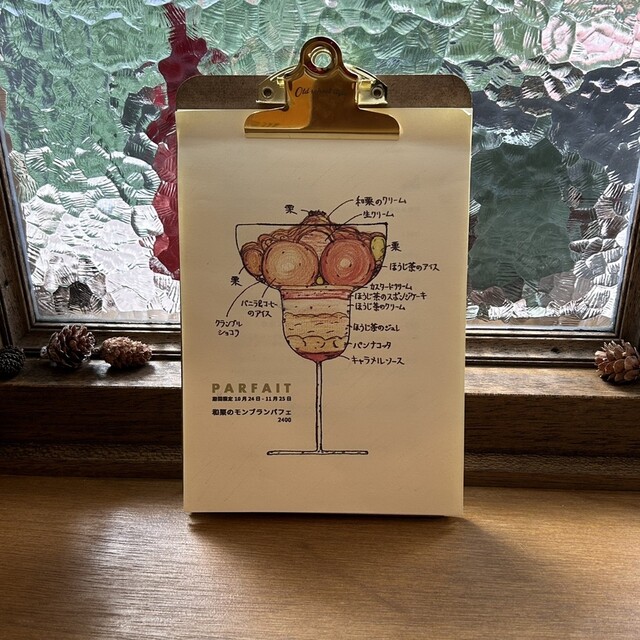 栗
和栗のクリーム
生クリーム
栗
ほうじ茶のアイス
栗
カスタードクリーム
ほうじ茶のスポンジケーキ
ほうじ茶のクリーム
クランブル
ショコラ
バニラ&コーヒー
のアイス
ほうじ茶のジュレ
パンナコッタ
キャラメルソース
PARFAIT
期間限定 10月24日-11月25日
和栗のモンブランパフェ
2400